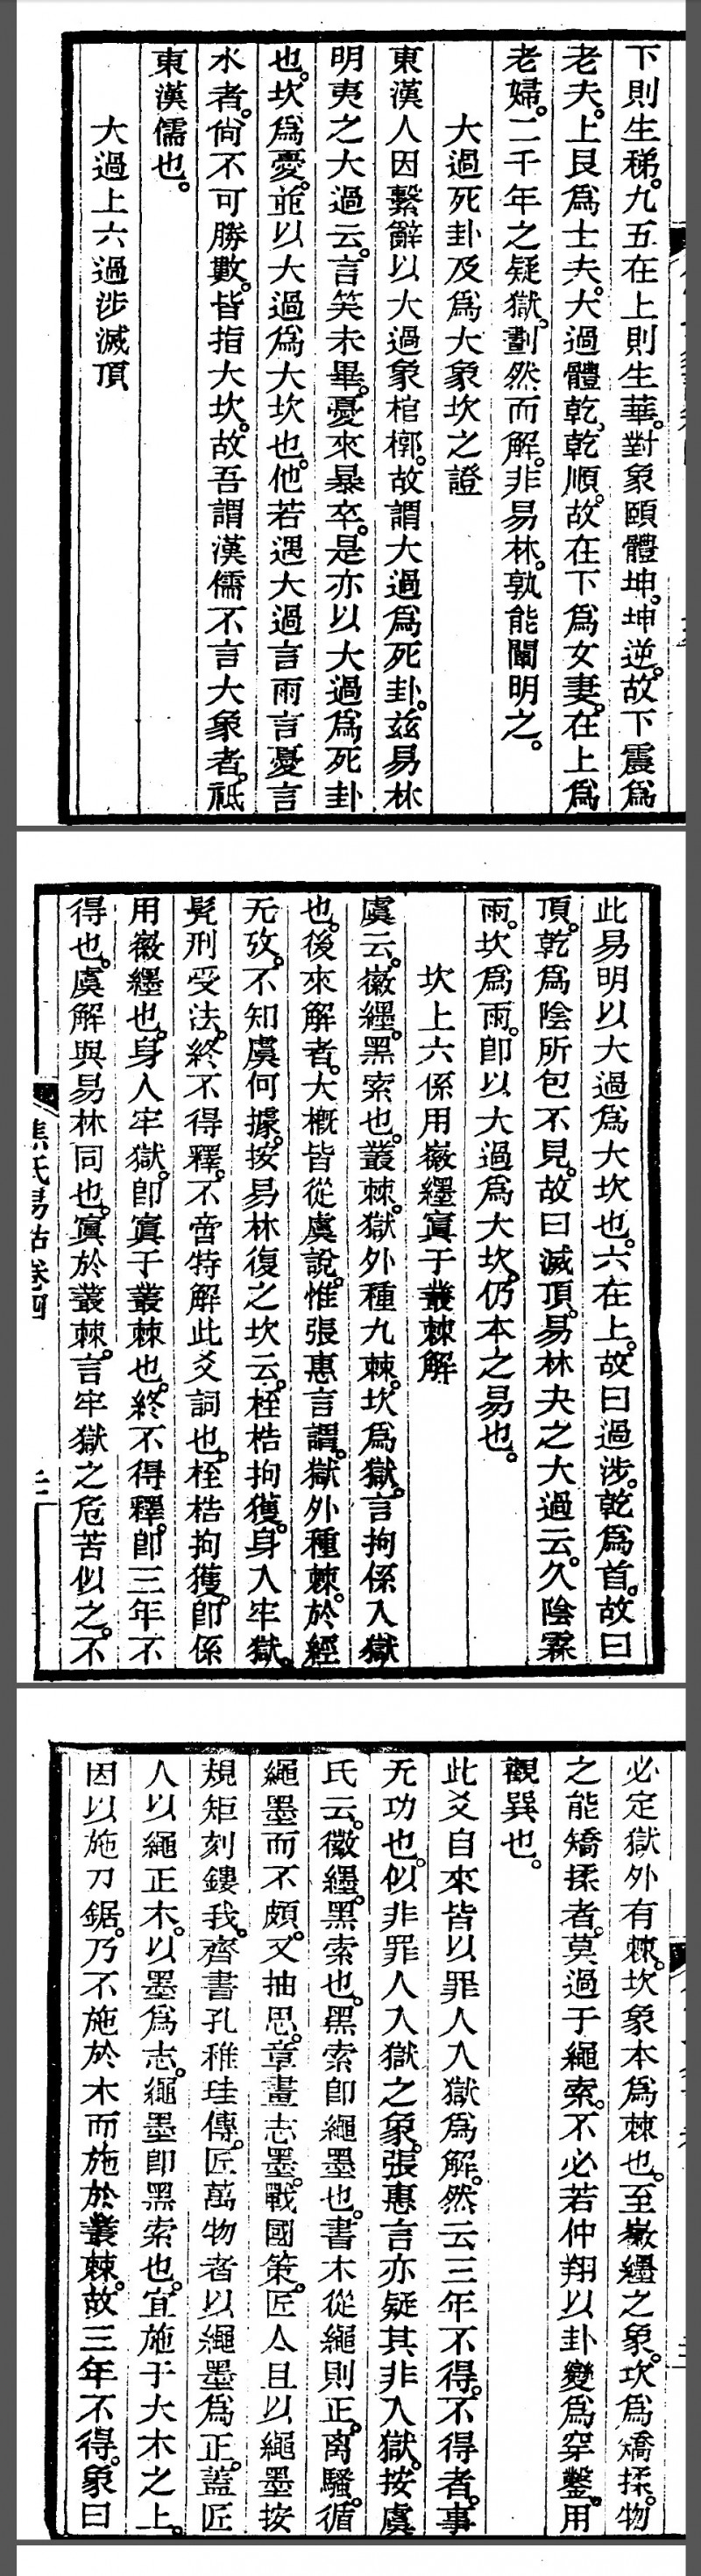 下則生稊。九五在上則生華。對象頤體坤。坤逆。故下震爲
老夫。上艮爲士夫。大過體乾、乾順。故在下爲女妻。在上爲
老婦。二千年之疑獄。劃然而解。非易林。孰能闡明之。
大過死卦及爲大象坎之證
東漢人因繫辭以大過象棺槨。故謂大過爲死卦。兹易林
明夷之大過云。言笑未畢。憂來暴卒。是亦以大過爲死卦
也。坎爲憂。並以大過爲大坎也。他若遇大過言雨言憂言
水者。尙不可勝數。皆指大坎。故吾謂漢儒不言大象者。祇
東漢儒也。
大過上六過涉滅頂
此易明以大過爲大坎也。六在上。故曰過涉。乾爲首。故曰
頂。乾爲陰所包不見。故曰滅頂。易林夬之大過云。久陰霖
雨。坎爲雨。卽以大過爲大坎。仍本之易也。
坎上六係用徽纆寘于叢棘解
虞云。徽纆。黑索也。叢棘。獄外種九棘。坎爲獄。言拘係入獄
也。後來解者。大概皆從虞說。惟張惠言謂。獄外種棘。於經
无攷。不知虞何據。按易林復之坎云。桎梏拘獲。身入牢獄。
髡刑受法。終不得釋。不啻特解此爻詞也。桎梏拘獲。卽係
用徽纆也。身入牢獄。卽寘于叢棘也。終不得釋。卽三年不
得也。虞解與易林同也。寘於叢棘。言牢獄之危苦似之。不
焦氏易詁卷四
必定獄外有棘。坎象本爲棘也。至徽纆之象。坎爲矯揉。物
之能矯揉者。莫過于繩索。不必若仲翔以卦變爲穿鑿。用
觀巽也。
此爻自來皆以罪人入獄爲解。然云三年不得。不得者。事
无功也。似非罪人入獄之象。張惠言亦疑其非入獄。按虞
氏云。徽纆。黑索也。黑索卽繩墨也。書木從繩則正。离騷。循
繩墨而不頗。又抽思。章畫志墨。戰國策。匠人且以繩墨按
規矩刻鏤我。齊書孔稚珪傳。匠萬物者以繩墨爲正。蓋匠
人以繩正木。以墨爲志。繩墨卽黑索也。宜施于大木之上。
因以施刀鋸。乃不施於木而施於叢棘。故三年不得。象曰